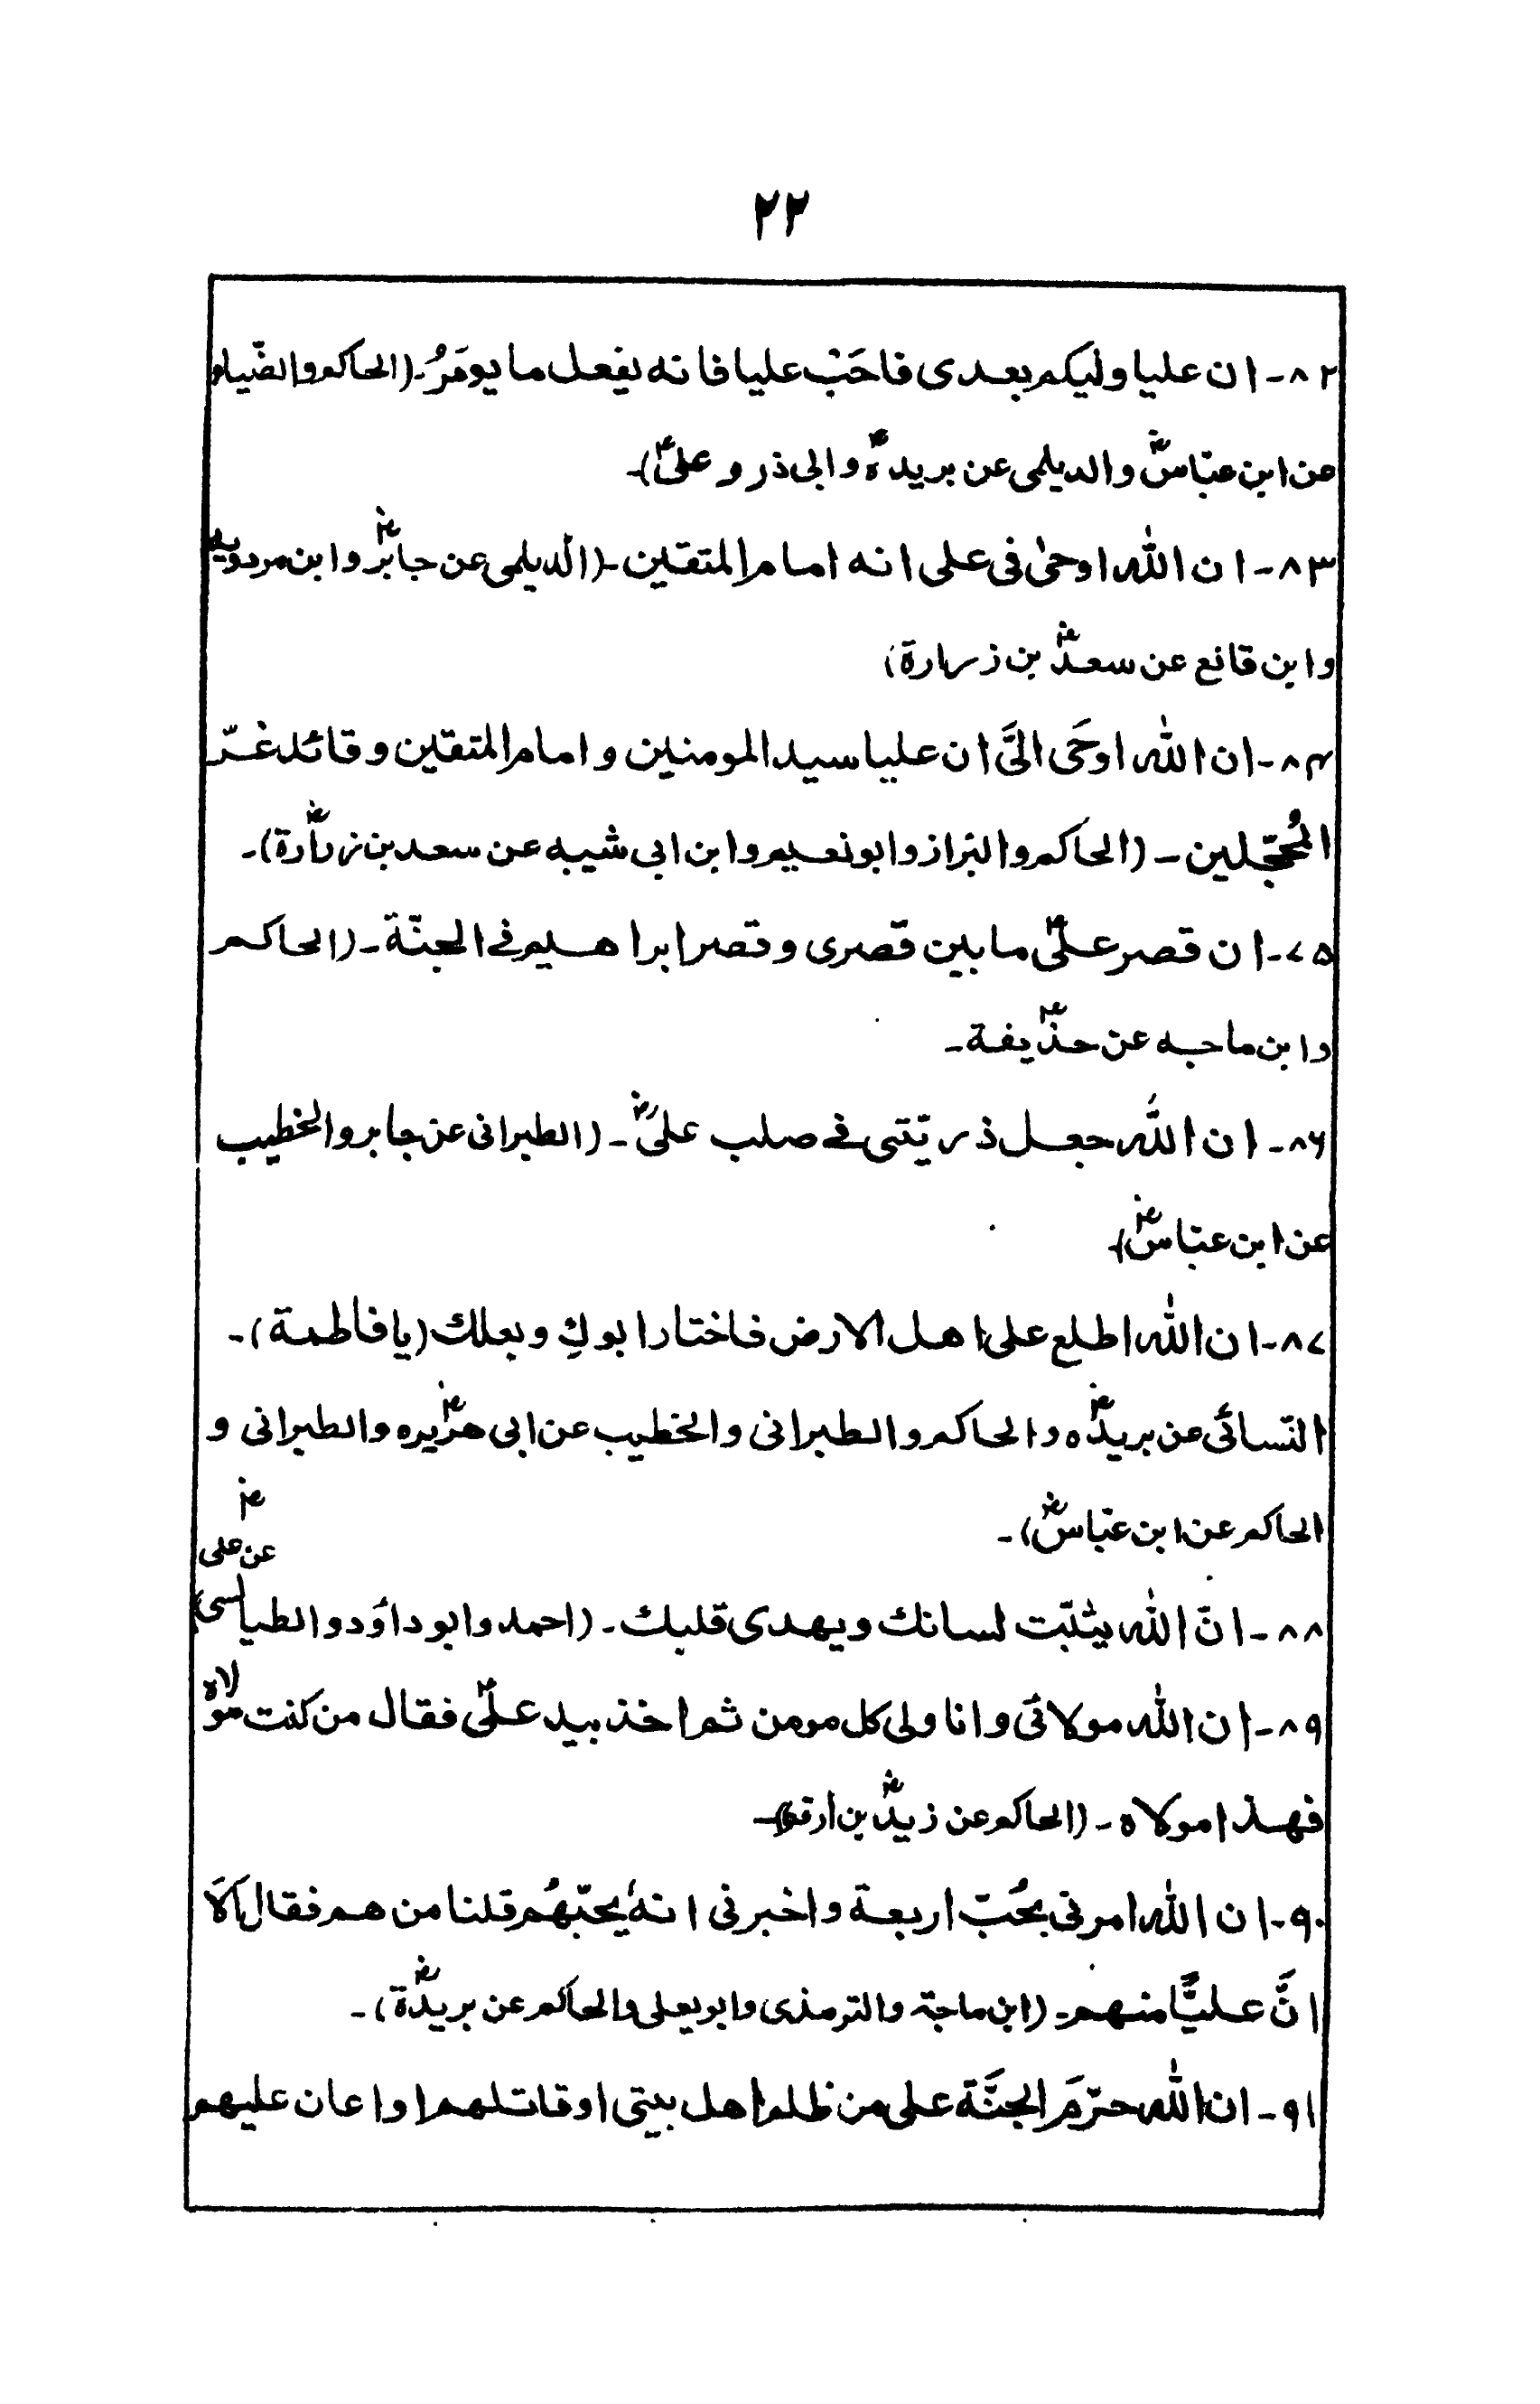 ۲۲
۸۲- ان علیا ولیکم بعدی فاحَبّ علیا فانه یفعل ما یومَرُ۔ (الحاکم والضّیاء
عن ابن عبّاسؓ والدیلمی عن بریدہؓ وابی ذر و علیؓ)۔
۸۳- ان اللّٰه اوحیٰ فی علی انه امام المتقین۔ (الّدیلمی عن جابرؓ وابن مردویه
وابن قانع عن سعدؓ بن زرارة)
۸۴- ان اللّٰه اوحَی الیَّ ان علیا سید المومنین و امام المتقین و قائد غُرّ
المُحجّلین۔ (الحاکم والبزاز وابو نعیم وابن ابی شیبه عن سعد بن زرارؓة)۔
۷۵- ان قصر علیؓ ما بین قصری و قصر ابراهیم فی الجنّة۔ (الحاکم
وابن ماجه عن حذؓیفة۔
۸۶- ان اللّٰه جعل ذریّتی فی صلب علیؓ۔ (الطبرانی عن جابر والخطیب
عن ابن عبّاسؓ)۔
۸۷- ان اللّٰه اطلع علی اهل الارض فاختار ابوكِ و بعلك (یا فاطمة)۔
النّسائی عن بریدؓہ والحاکم والطبرانی والخطیب عن ابی هرؓیره والطبرانی و
الحاکم عن ابن عبّاسؓ)۔
عن علیؓ
۸۸- انّ اللّٰه یثبّت لسانك ویهدی قلبك۔ (احمد وابو داؤد والطیالسی)
۸۹- ان اللّٰه مولائی وانا ولی کل مومن ثم اخذ بید علیؓ فقال من کنت مولاه
فهذا مولاہ۔ (الحاکم عن زیدؓ بن ارقم)۔
۹۰- ان اللّٰه امرنی بحُبّ اربعة واخبرنی انهٗ یحبّهُم قلنا من هم فقال اَلَا
انَّ علیًّا منهم۔ (ابن ماجة والترمذی وابو یعلی والحاکم عن بریدؓة)۔
۹۱- ان اللّٰه حرّمَ الجنَّة علی من ظلم اهل بیتی او قاتلهم او اعان علیهم